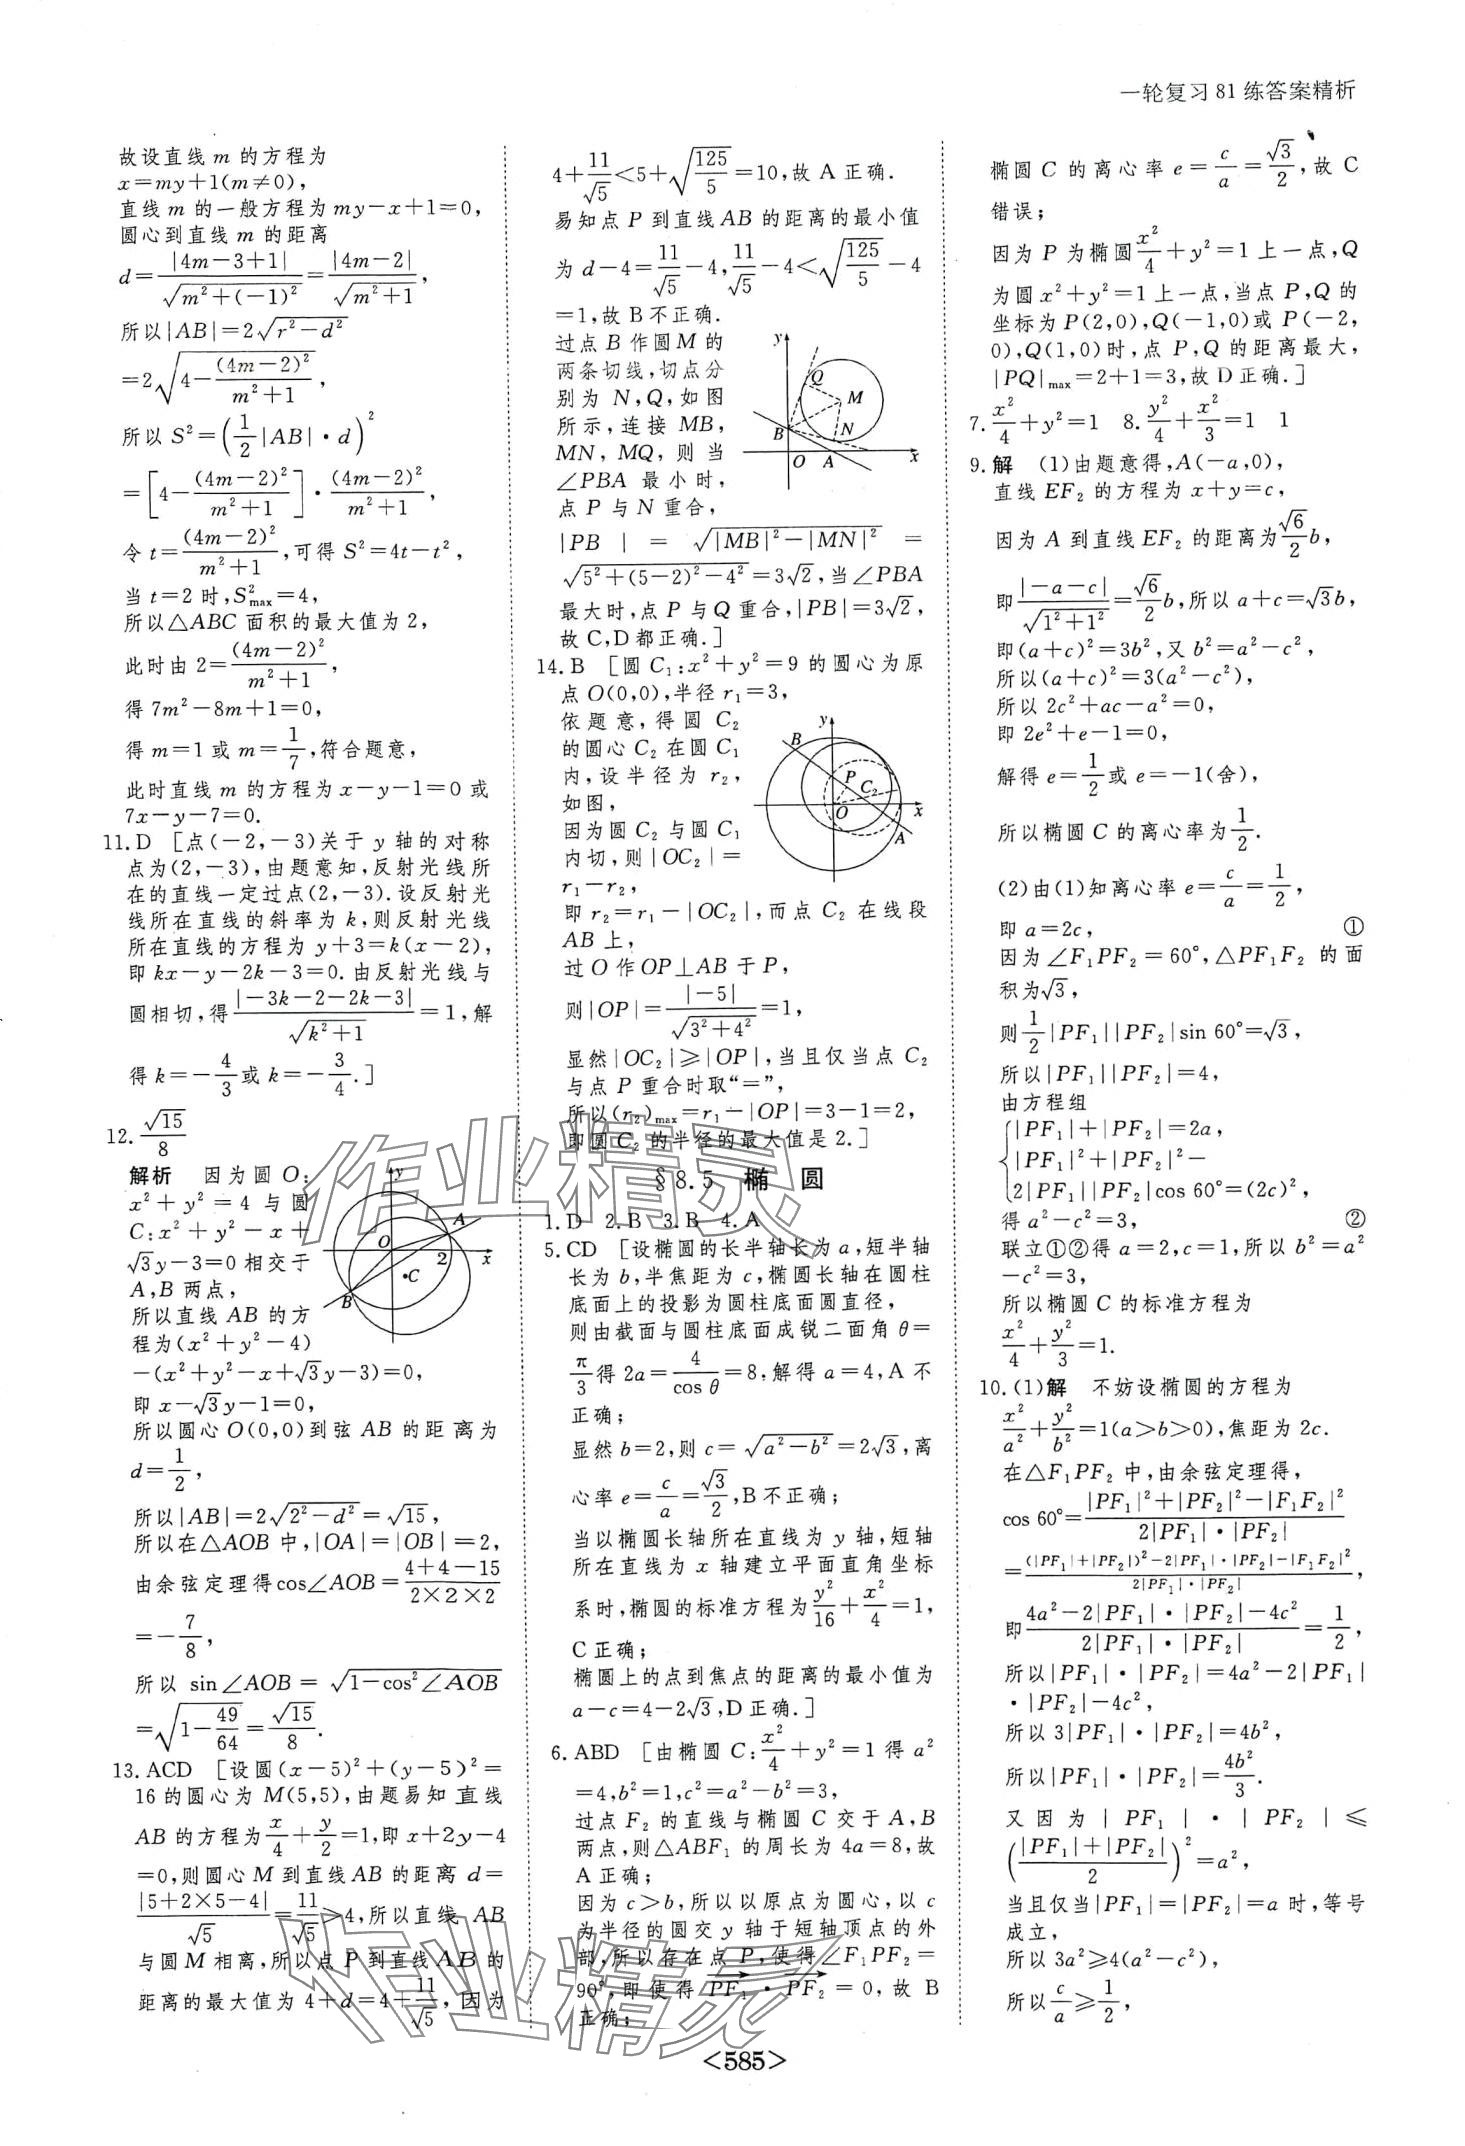 一轮复习81练答案精析
故设直线 m 的方程为
x=my+1(m≠0),
直线 m 的一般方程为 my-x+1=0,
圆心到直线 m 的距离
d=\frac{|4m-3+1|}{\sqrt{m^2+(-1)^2}}=\frac{|4m-2|}{\sqrt{m^2+1}},
所以|AB|=2\sqrt{r^2-d^2}
=2\sqrt{4-\frac{(4m-2)^2}{m^2+1}},
所以 S^2=(\frac{1}{2}|AB|·d)^2
=[4-\frac{(4m-2)^2}{m^2+1}]·\frac{(4m-2)^2}{m^2+1},
令 t=\frac{(4m-2)^2}{m^2+1},可得 S^2=4t-t^2,
当 t=2 时,S^2_{max}=4,
所以△ABC 面积的最大值为 2,
此时由 2=\frac{(4m-2)^2}{m^2+1},
得 7m^2-8m+1=0,
得 m=1 或 m=\frac{1}{7},符合题意,
此时直线 m 的方程为 x-y-1=0 或
7x-y-7=0.
11.D [点(-2,-3)关于 y 轴的对称
点为(2,-3),由题意知,反射光线所
在的直线一定过点(2,-3).设反射光
线所在直线的斜率为 k,则反射光线
所在直线的方程为 y+3=k(x-2),
即 kx-y-2k-3=0.由反射光线与
圆相切,得\frac{|-3k-2-2k-3|}{\sqrt{k^2+1}}=1,解
得 k=-\frac{4}{3}或 k=-\frac{3}{4}.]
12.\frac{\sqrt{15}}{8}
解析 因为圆 O:
x^2+y^2=4 与圆
C:x^2+y^2-x+
\sqrt{3}y-3=0 相交于
A,B 两点,
所以直线 AB 的方
程为(x^2+y^2-4)
-(x^2+y^2-x+\sqrt{3}y-3)=0,
即 x-\sqrt{3}y-1=0,
所以圆心 O(0,0)到弦 AB 的距离为
d=\frac{1}{2},
所以|AB|=2\sqrt{2^2-d^2}=\sqrt{15},
所以在△AOB 中,|OA|=|OB|=2,
由余弦定理得cos∠AOB=\frac{4+4-15}{2×2×2}
=-\frac{7}{8},
所以 sin∠AOB=\sqrt{1-cos^2∠AOB}
=\sqrt{1-\frac{49}{64}}=\frac{\sqrt{15}}{8}.
y
A
O
2
x
C
B
13.ACD [设圆(x-5)^2+(y-5)^2=
16 的圆心为 M(5,5),由题易知直线
AB 的方程为\frac{x}{4}+\frac{y}{2}=1,即 x+2y-4
=0,则圆心 M 到直线 AB 的距离 d=
\frac{|5+2×5-4|}{\sqrt{5}}=\frac{11}{\sqrt{5}}>4,所以直线 AB
与圆 M 相离,所以点 P 到直线 AB 的
距离的最大值为 4+d=4+\frac{11}{\sqrt{5}},因为
4+\frac{11}{\sqrt{5}}<5+\sqrt{\frac{125}{5}}=10,故 A 正确.
易知点 P 到直线 AB 的距离的最小值
为 d-4=\frac{11}{\sqrt{5}}-4,\frac{11}{\sqrt{5}}-4<\sqrt{\frac{125}{5}}-4
=1,故 B 不正确.
过点 B 作圆 M 的
两条切线,切点分
别为 N,Q,如图
所示,连接 MB,
MN,MQ,则当
∠PBA 最小时,
点 P 与 N 重合,
y
Q
M
B
N
O
A
x
|PB|=\sqrt{|MB|^2-|MN|^2}=
\sqrt{5^2+(5-2)^2-4^2}=3\sqrt{2},当∠PBA
最大时,点 P 与 Q 重合,|PB|=3\sqrt{2},
故 C,D 都正确.]
14.B [圆 C_1:x^2+y^2=9 的圆心为原
点 O(0,0),半径 r_1=3,
依题意,得圆 C_2
的圆心 C_2 在圆 C_1
内,设半径为 r_2,
如图,
因为圆 C_2 与圆 C_1
内切,则|OC_2|=
r_1-r_2,
y
B
P
C_2
O
x
A
即 r_2=r_1-|OC_2|,而点 C_2 在线段
AB 上,
过 O 作 OP⊥AB 于 P,
则|OP|=\frac{|-5|}{\sqrt{3^2+4^2}}=1,
显然|OC_2|≥|OP|,当且仅当点 C_2
与点 P 重合时取“=”,
所以(r_2)_{max}=r_1-|OP|=3-1=2,
即圆 C_2 的半径的最大值是 2.]
§8.5 椭 圆
1.D 2.B 3.B 4.A
5.CD [设椭圆的长半轴长为 a,短半轴
长为 b,半焦距为 c,椭圆长轴在圆柱
底面上的投影为圆柱底面圆直径,
则由截面与圆柱底面成锐二面角 θ=
\frac{π}{3}得 2a=\frac{4}{cos θ}=8,解得 a=4,A 不
正确;
显然 b=2,则 c=\sqrt{a^2-b^2}=2\sqrt{3},离
心率 e=\frac{c}{a}=\frac{\sqrt{3}}{2},B 不正确;
当以椭圆长轴所在直线为 y 轴,短轴
所在直线为 x 轴建立平面直角坐标
系时,椭圆的标准方程为\frac{y^2}{16}+\frac{x^2}{4}=1,
C 正确;
椭圆上的点到焦点的距离的最小值为
a-c=4-2\sqrt{3},D 正确.]
6.ABD [由椭圆 C:\frac{x^2}{4}+y^2=1 得 a^2
=4,b^2=1,c^2=a^2-b^2=3,
过点 F_2 的直线与椭圆 C 交于 A,B
两点,则△ABF_1 的周长为 4a=8,故
A 正确;
因为 c>b,所以以原点为圆心,以 c
为半径的圆交 y 轴于短轴顶点的外
部,所以存在点 P,使得∠F_1PF_2=
90°,即使得\overrightarrow{PF_1}·\overrightarrow{PF_2}=0,故 B
正确;
椭圆 C 的离心率 e=\frac{c}{a}=\frac{\sqrt{3}}{2},故 C
错误;
因为 P 为椭圆\frac{x^2}{4}+y^2=1 上一点,Q
为圆 x^2+y^2=1 上一点,当点 P,Q 的
坐标为 P(2,0),Q(-1,0)或 P(-2,
0),Q(1,0)时,点 P,Q 的距离最大,
|PQ|_{max}=2+1=3,故 D 正确.]
7.\frac{x^2}{4}+y^2=1 8.\frac{y^2}{4}+\frac{x^2}{3}=1 1
9.解 (1)由题意得,A(-a,0),
直线 EF_2 的方程为 x+y=c,
因为 A 到直线 EF_2 的距离为\frac{\sqrt{6}}{2}b,
即\frac{|-a-c|}{\sqrt{1^2+1^2}}=\frac{\sqrt{6}}{2}b,所以 a+c=\sqrt{3}b,
即(a+c)^2=3b^2,又 b^2=a^2-c^2,
所以(a+c)^2=3(a^2-c^2),
所以 2c^2+ac-a^2=0,
即 2e^2+e-1=0,
解得 e=\frac{1}{2}或 e=-1(舍),
所以椭圆 C 的离心率为\frac{1}{2}.
(2)由(1)知离心率 e=\frac{c}{a}=\frac{1}{2},
即 a=2c, ①
因为∠F_1PF_2=60°,△PF_1F_2 的面
积为\sqrt{3},
则\frac{1}{2}|PF_1||PF_2|sin 60°=\sqrt{3},
所以|PF_1||PF_2|=4,
由方程组
{|PF_1|+|PF_2|=2a,
|PF_1|^2+|PF_2|^2-
2|PF_1||PF_2|cos 60°=(2c)^2,
得 a^2-c^2=3, ②
联立①②得 a=2,c=1,所以 b^2=a^2
-c^2=3,
所以椭圆 C 的标准方程为
\frac{x^2}{4}+\frac{y^2}{3}=1.
10.(1)解 不妨设椭圆的方程为
\frac{x^2}{a^2}+\frac{y^2}{b^2}=1(a>b>0),焦距为 2c.
在△F_1PF_2 中,由余弦定理得,
cos 60°=\frac{|PF_1|^2+|PF_2|^2-|F_1F_2|^2}{2|PF_1|·|PF_2|}
=\frac{(|PF_1|+|PF_2|)^2-2|PF_1|·|PF_2|-|F_1F_2|^2}{2|PF_1|·|PF_2|},
即\frac{4a^2-2|PF_1|·|PF_2|-4c^2}{2|PF_1|·|PF_2|}=\frac{1}{2},
所以|PF_1|·|PF_2|=4a^2-2|PF_1|
·|PF_2|-4c^2,
所以 3|PF_1|·|PF_2|=4b^2,
所以|PF_1|·|PF_2|=\frac{4b^2}{3}.
又因为|PF_1|·|PF_2|≤
(\frac{|PF_1|+|PF_2|}{2})^2=a^2,
当且仅当|PF_1|=|PF_2|=a 时,等号
成立,
所以 3a^2≥4(a^2-c^2),
所以\frac{c}{a}≥\frac{1}{2},
<585>
作业精灵
作业精灵